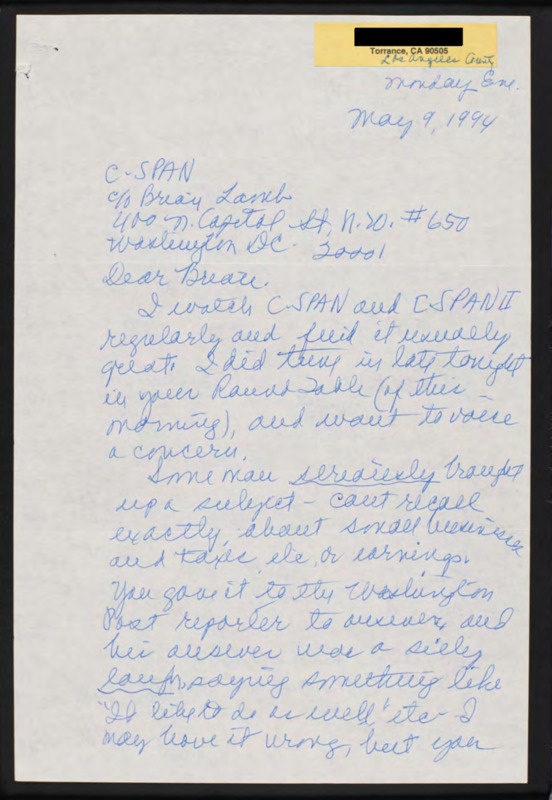 Torrance, CA 90505
Los Angeles County
Monday Eve.
May 9, 1994
C-SPAN
c/o Brian Lamb
400 N. Capitol St, N.W. #650
Washington DC. 20001
Dear Brian.
I watch C-SPAN and C-SPAN II
regularly and find it usually
great. I did tune in late tonight
in your Round Table (of this
morning), and want to voice
a concern.
Some man seriously brought
up a subject - cant recall
exactly, about small businesses
and taxes, etc, or earnings.
You gave it to the Washington
Post reporter to answer, and
his answer was a silly
laugh, saying something like
"I'd like to do as well" etc - I
may have it wrong, but you